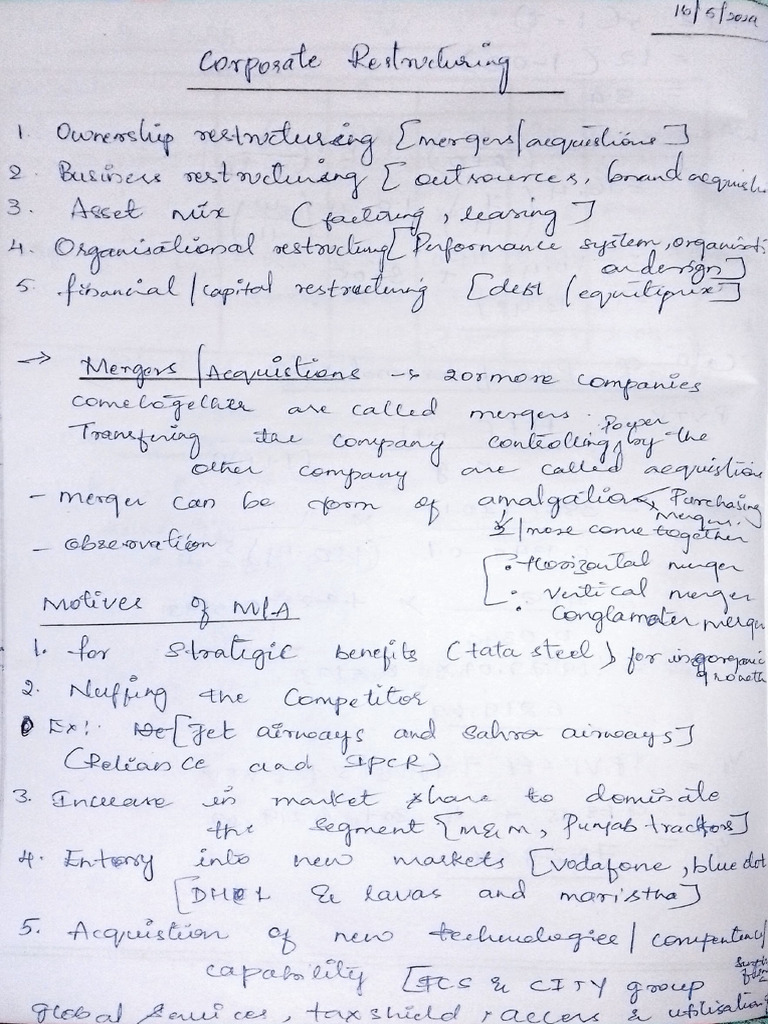 16/5/2024
Corporate Restructuring
1. Ownership restructuring [mergers/acquistions]
2. Business restructuring [outsources, brand acquisti
3. Asset mix (factoring, leasing]
4. Organisational restructing [Performance system, organisati
on design]
5. financial/capital restructuring [debt/equitiymix]
→ Mergers/Acquistions → 2 or more companies
come together are called mergers. Power
Transfering the company controlling, by the
other company are called acquistions
- merger can be form of amalgation Purchasing
merger.
- observation 2/more come together
• Horizontal merger
• vertical merger
Motives of M/A • Conglamoter merger
1. for strategic benefits (tata steel) for ingorganic
growth
2. Nuffing the Competitor
Ex: [Jet airways and Sahra airways]
(Reliance and IPCR)
3. Increase in market share to dominate
the segment [M&M, Punjab tractors]
4. Entory into new markets [Vodafone, blue dot
[DHL & lavas and maristha]
5. Acquistion of new technologies/competency/
capability [TCS & CITY group
global services, tax shield, access & utilisation